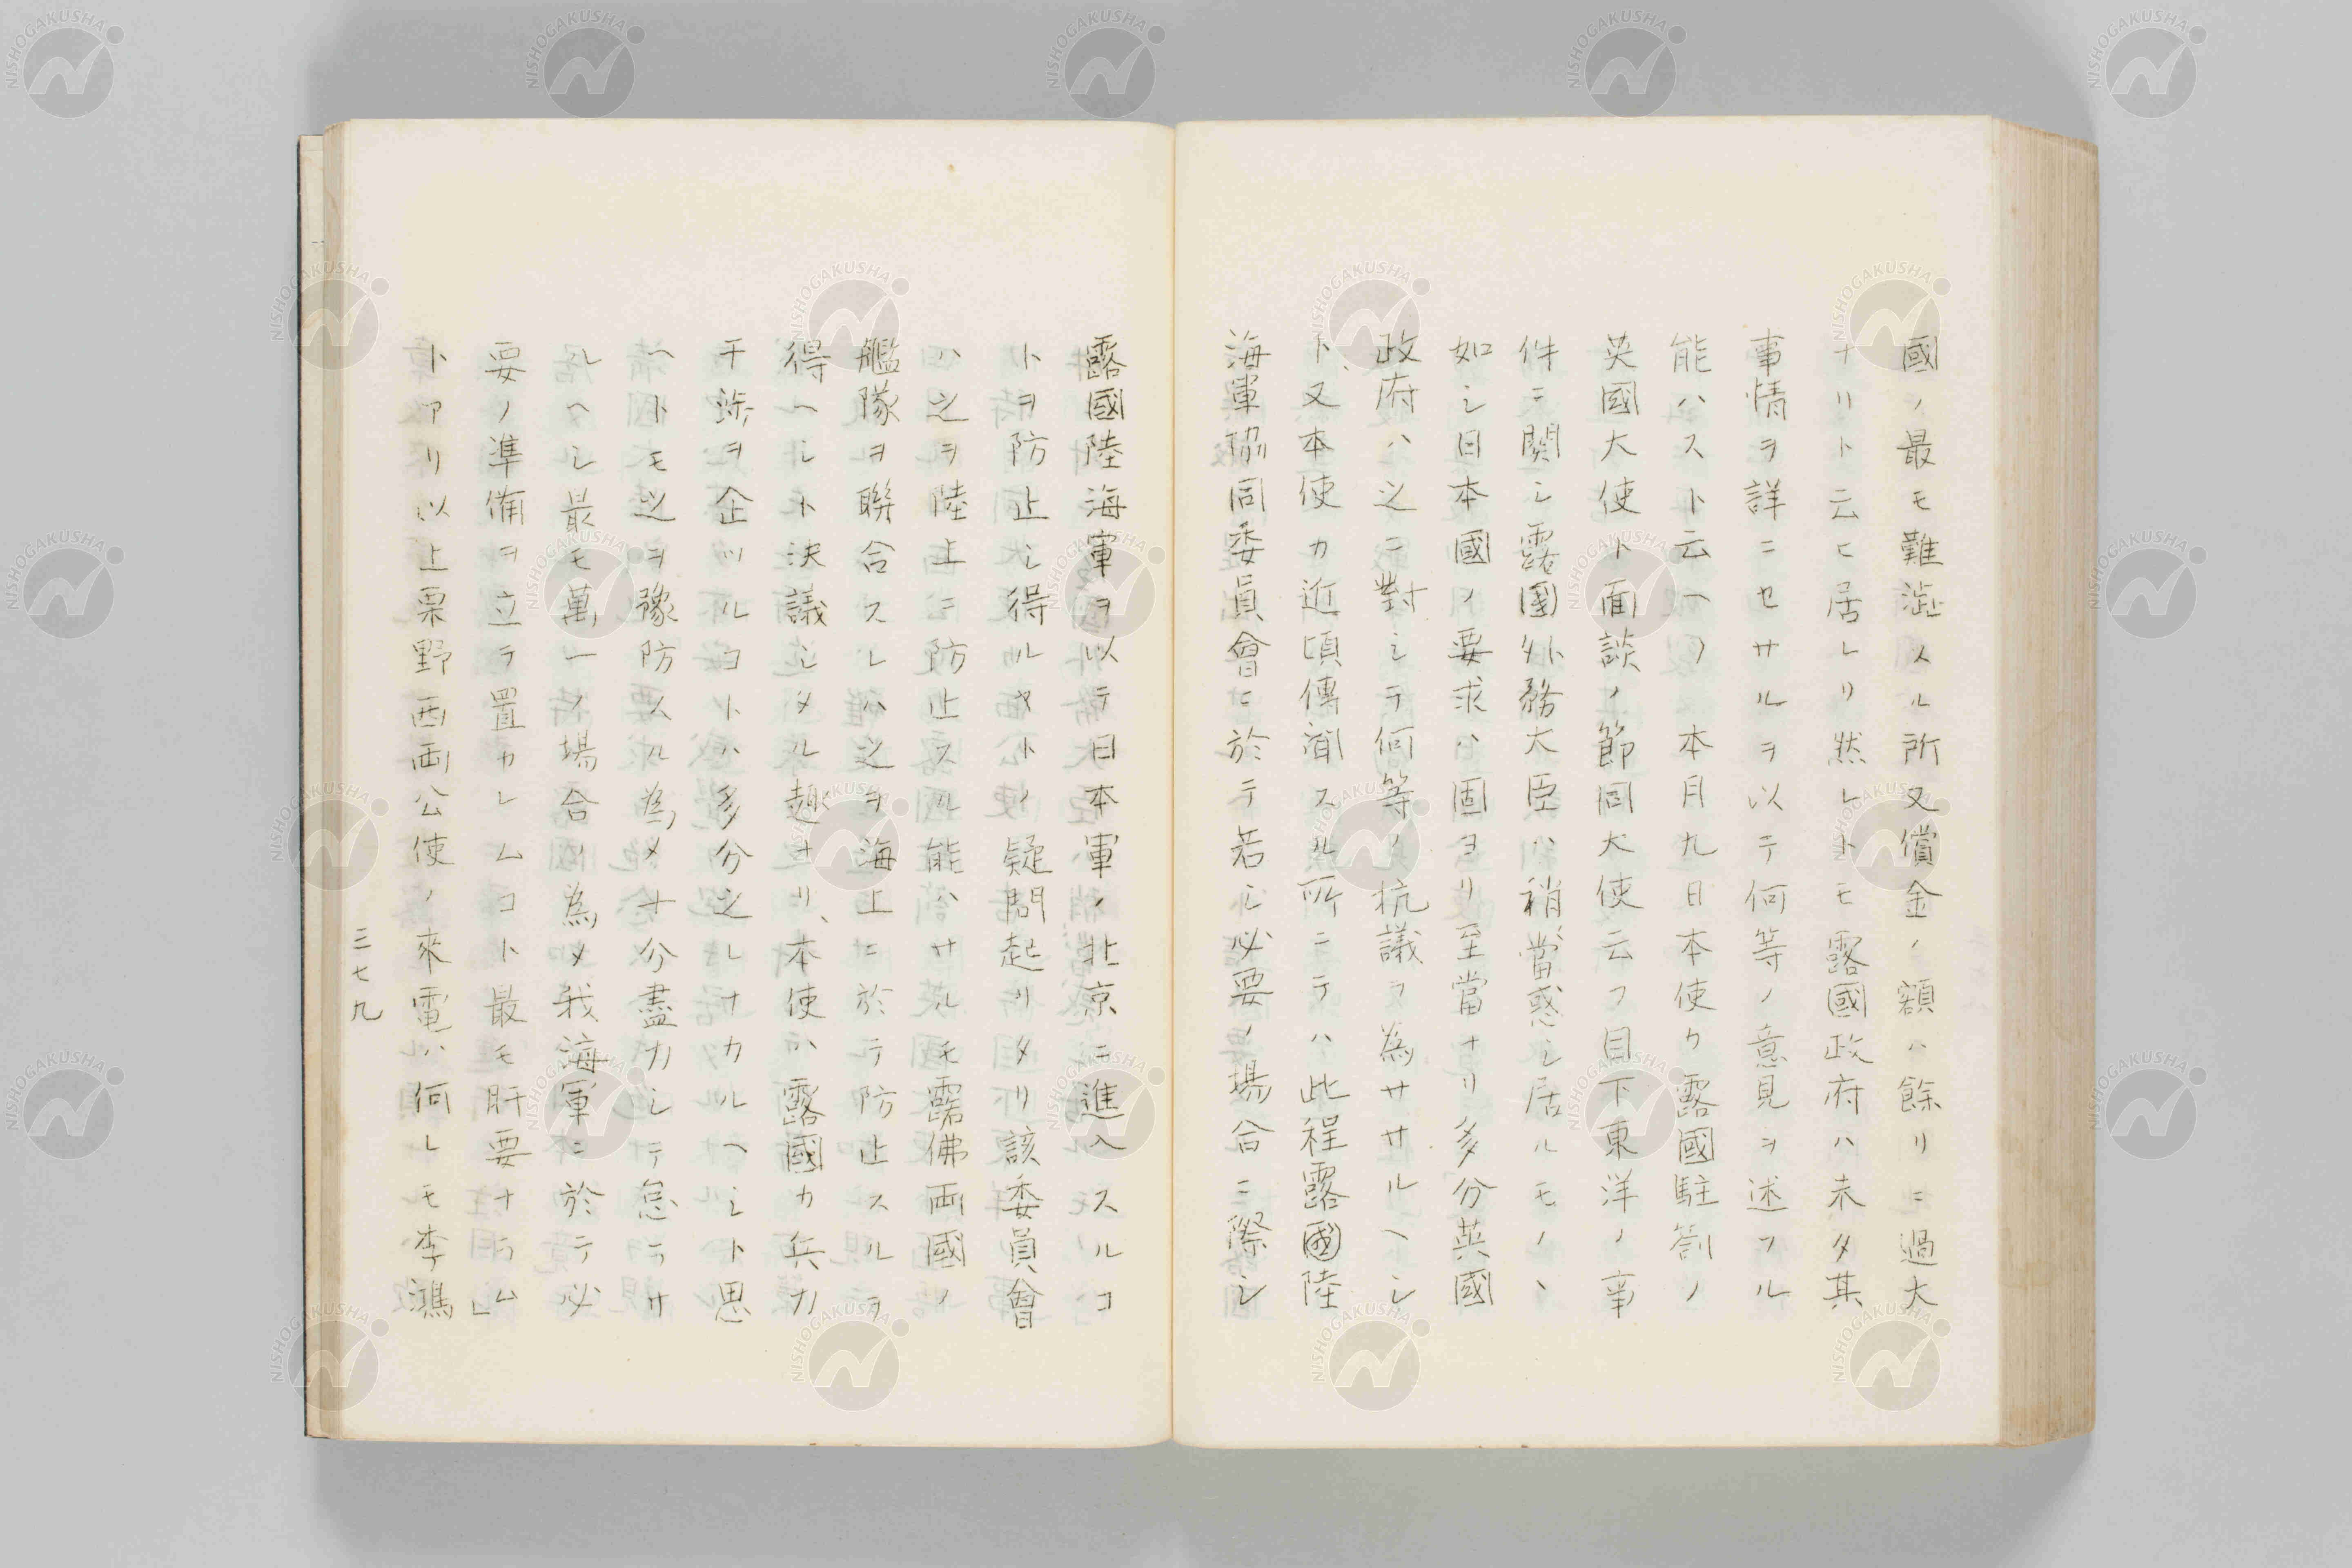 國ノ最モ難澁スル所又償金ノ額ハ餘リニ過大
ナリト云ヒ居レリ然レトモ露國政府ハ未タ其
事情ヲ詳ニセサルヲ以テ何等ノ意見ヲ述フル
能ハスト云ヘリ 本月九日本使カ露國駐劄ノ
英國大使ト面談ノ節同大使云フ目下東洋ノ事
件ニ関シ露國外務大臣ハ稍當惑シ居ルモノヽ
如シ日本國ノ要求ハ固ヨリ至當ナリ多分英國
政府ハ之ニ對シテ何等ノ抗議ヲ為サヽルヘシ
ト、又本使カ近頃傳聞スル所ニテハ此程露國陸
海軍協同委員會ニ於テ若シ必要ノ場合ニ際シ
露國陸海軍ヲ以テ日本軍ノ北京ニ進入スルコ
トヲ防止シ得ルヤトノ疑問起リタリ該委員會
ハ之ヲ陸上ニ防止スル能ハサルモ露佛両國ノ
艦隊ヲ聯合スレハ之ヲ海上ニ於テ防止スルヲ
得ヘシト決議シタル趣ナリ、本使ハ露國カ兵力
干渉ヲ企ツルコトハ多分之レナカルヘシト思
ヘトモ之ヲ豫防スル為メ十分盡力シテ怠ラサ
ルヘシ最モ萬一ノ場合ノ為メ我海軍ニ於テ必
要ノ準備ヲ立テ置カレムコト最モ肝要ナラム」
トアリ以上栗野西両公使ノ來電ハ何レモ李鴻
三七九
NISHOGAKUSHA